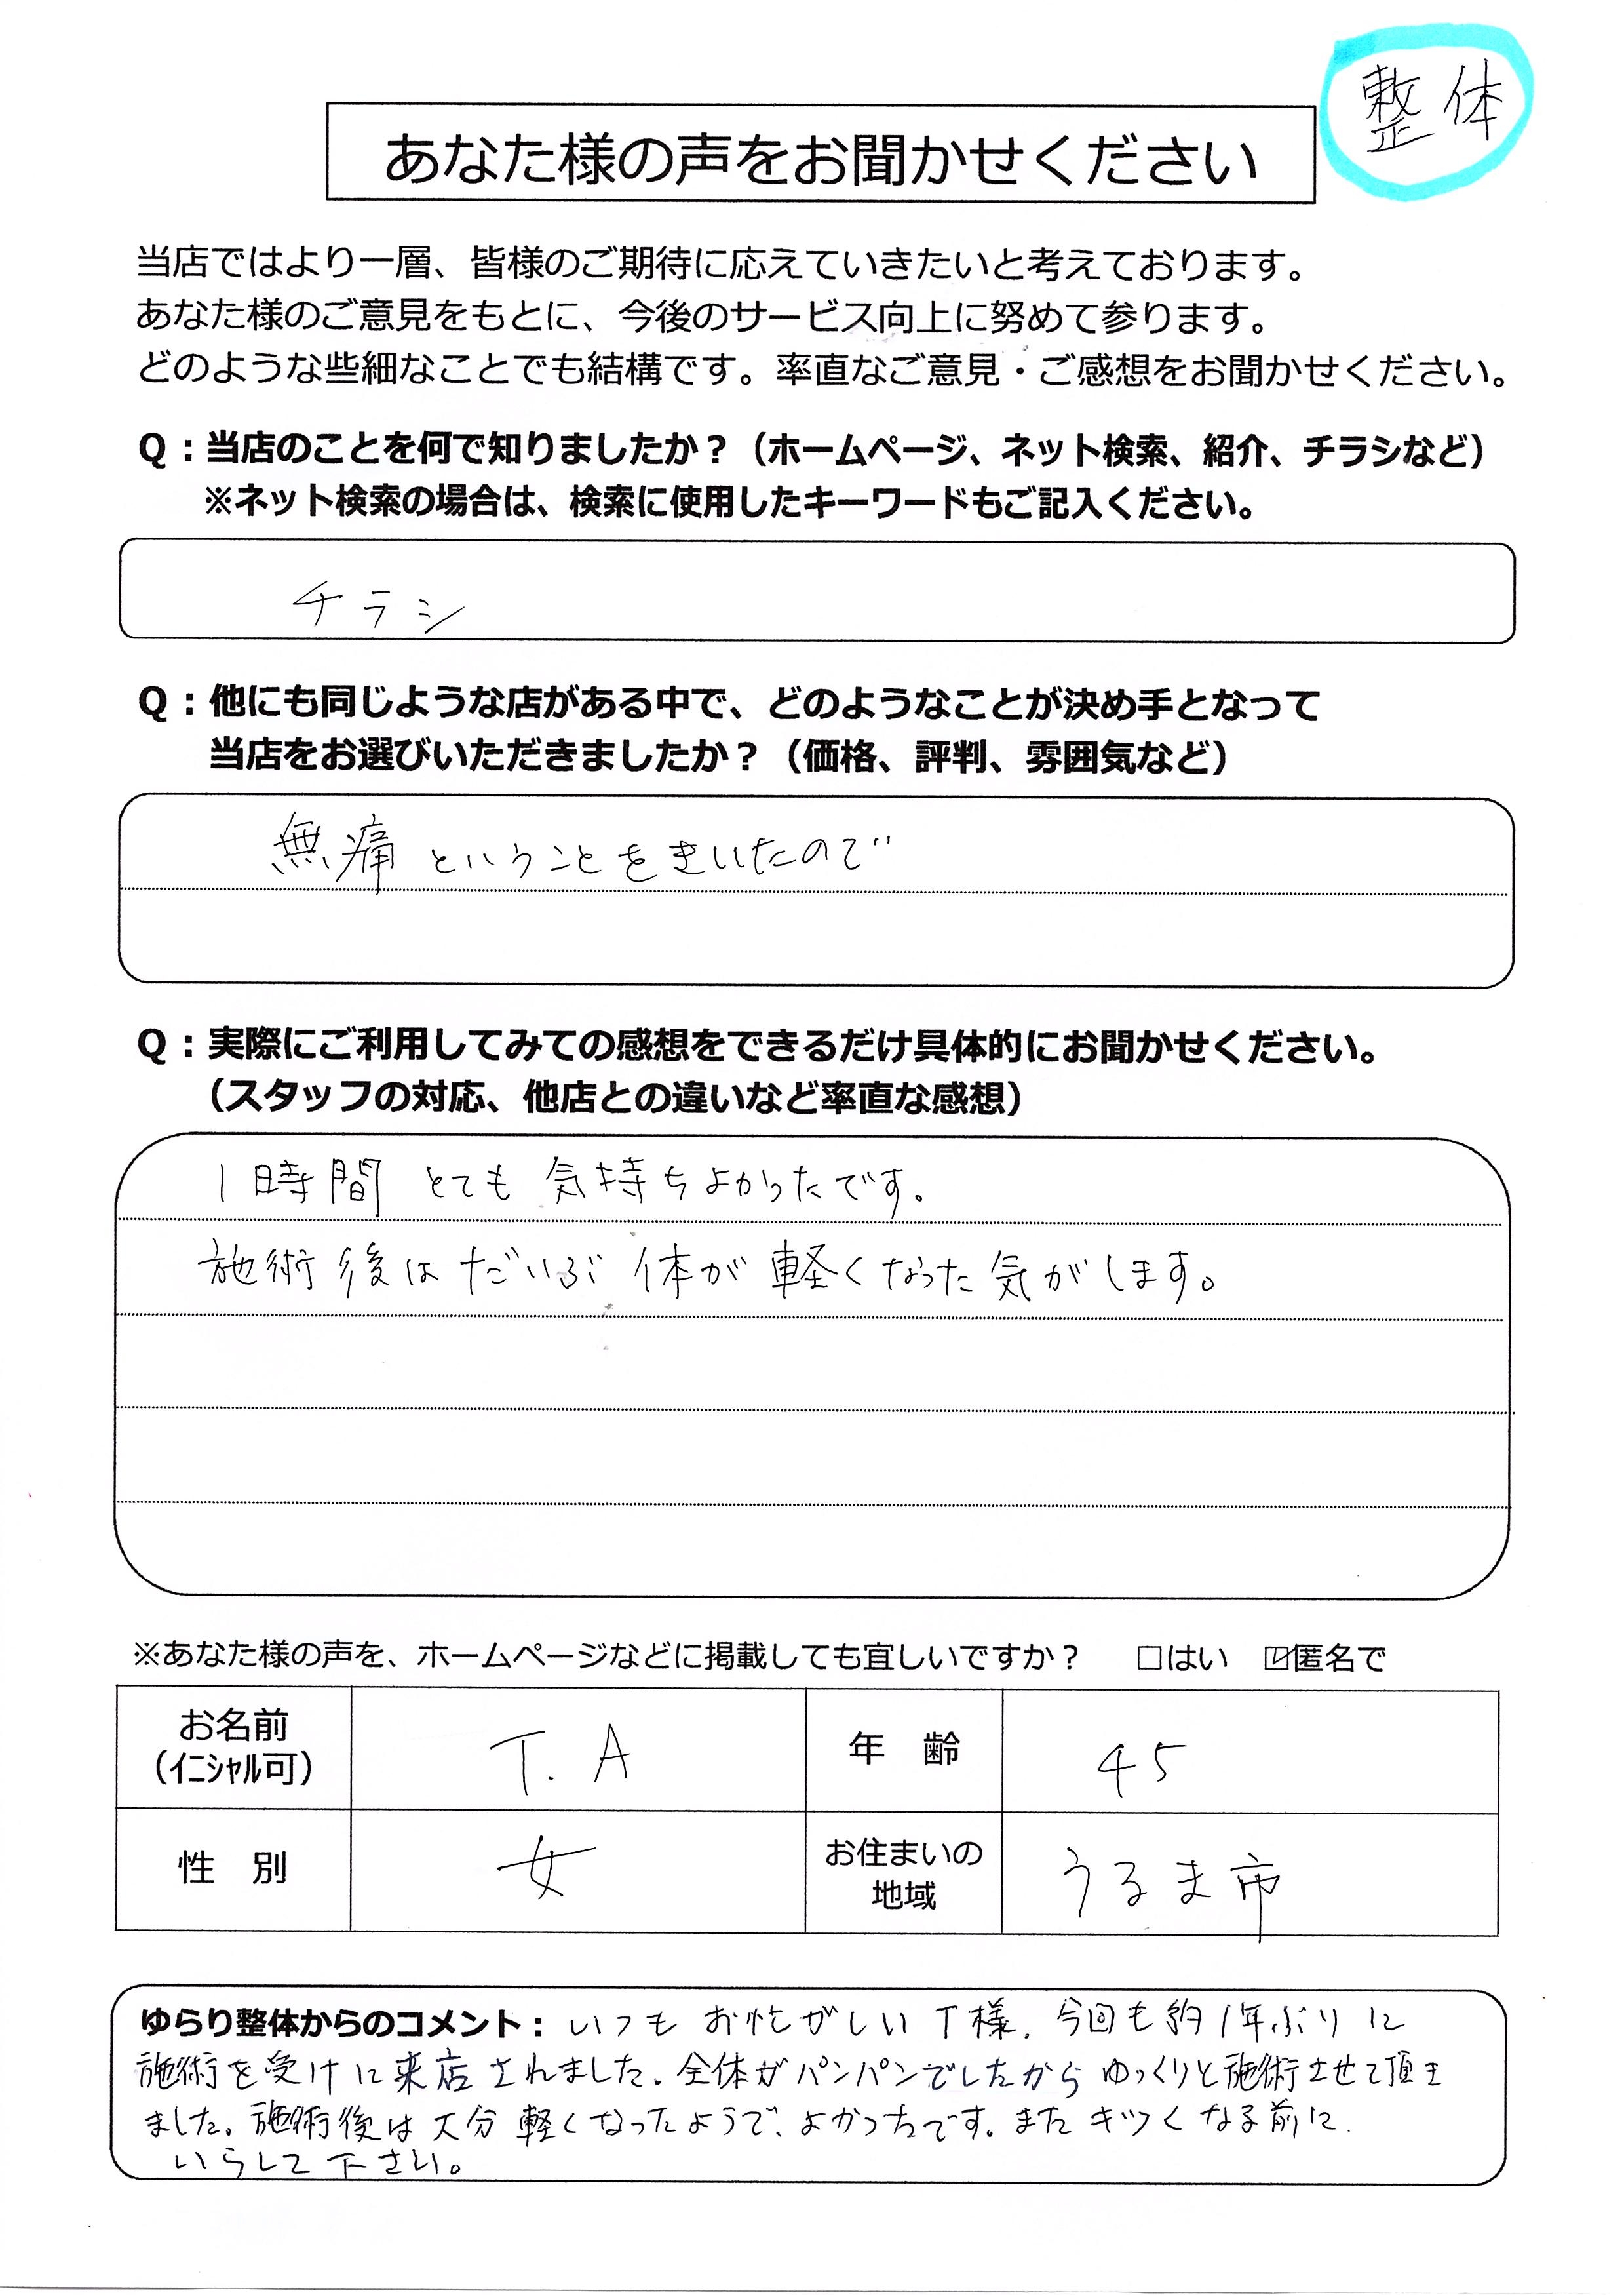 整体
あなた様の声をお聞かせください
当店ではより一層、皆様のご期待に応えていきたいと考えております。
あなた様のご意見をもとに、今後のサービス向上に努めて参ります。
どのような些細なことでも結構です。率直なご意見・ご感想をお聞かせください。
Q：当店のことを何で知りましたか？（ホームページ、ネット検索、紹介、チラシなど）
※ネット検索の場合は、検索に使用したキーワードもご記入ください。
チラシ
Q：他にも同じような店がある中で、どのようなことが決め手となって
当店をお選びいただきましたか？（価格、評判、雰囲気など）
無痛ということをきいたので
Q：実際にご利用してみての感想をできるだけ具体的にお聞かせください。
（スタッフの対応、他店との違いなど率直な感想）
1時間とても気持ちよかったです。
施術後はだいぶ体が軽くなった気がします。
※あなた様の声を、ホームページなどに掲載しても宜しいですか？ □はい ☑匿名で
お名前 T.A 年齢 45
（イニシャル可）
性別 女 お住まいの うるま市
地域
ゆらり整体からのコメント：いつもお忙がしいT様。今回も約1年ぶりに
施術を受けに来店されました。全体がパンパンでしたからゆっくりと施術させて頂き
ました。施術後は大分軽くなったようで、よかったです。またキツくなる前に
いらして下さい。